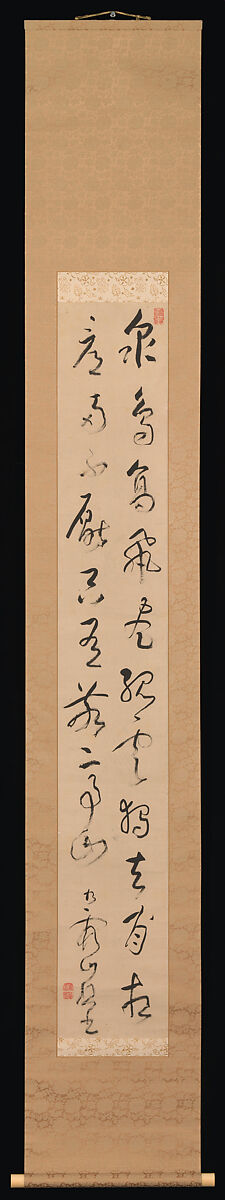 衆鳥高飛盡孤雲獨去閒相
看兩不厭只有敬亭山 九霞山樵書